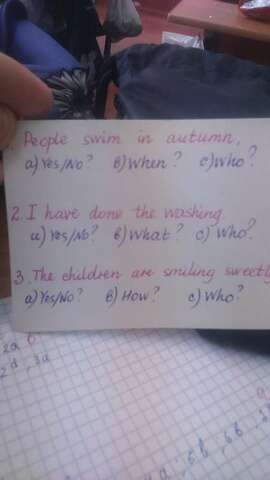 People swim in autumn.
a) Yes/No? b) When? c) Who?
2. I have done the washing.
a) Yes/No? b) What? c) Who?
3. The children are smiling sweetly
a) Yes/No? b) How? c) Who?
2a
2d, 3a
6b, 6b